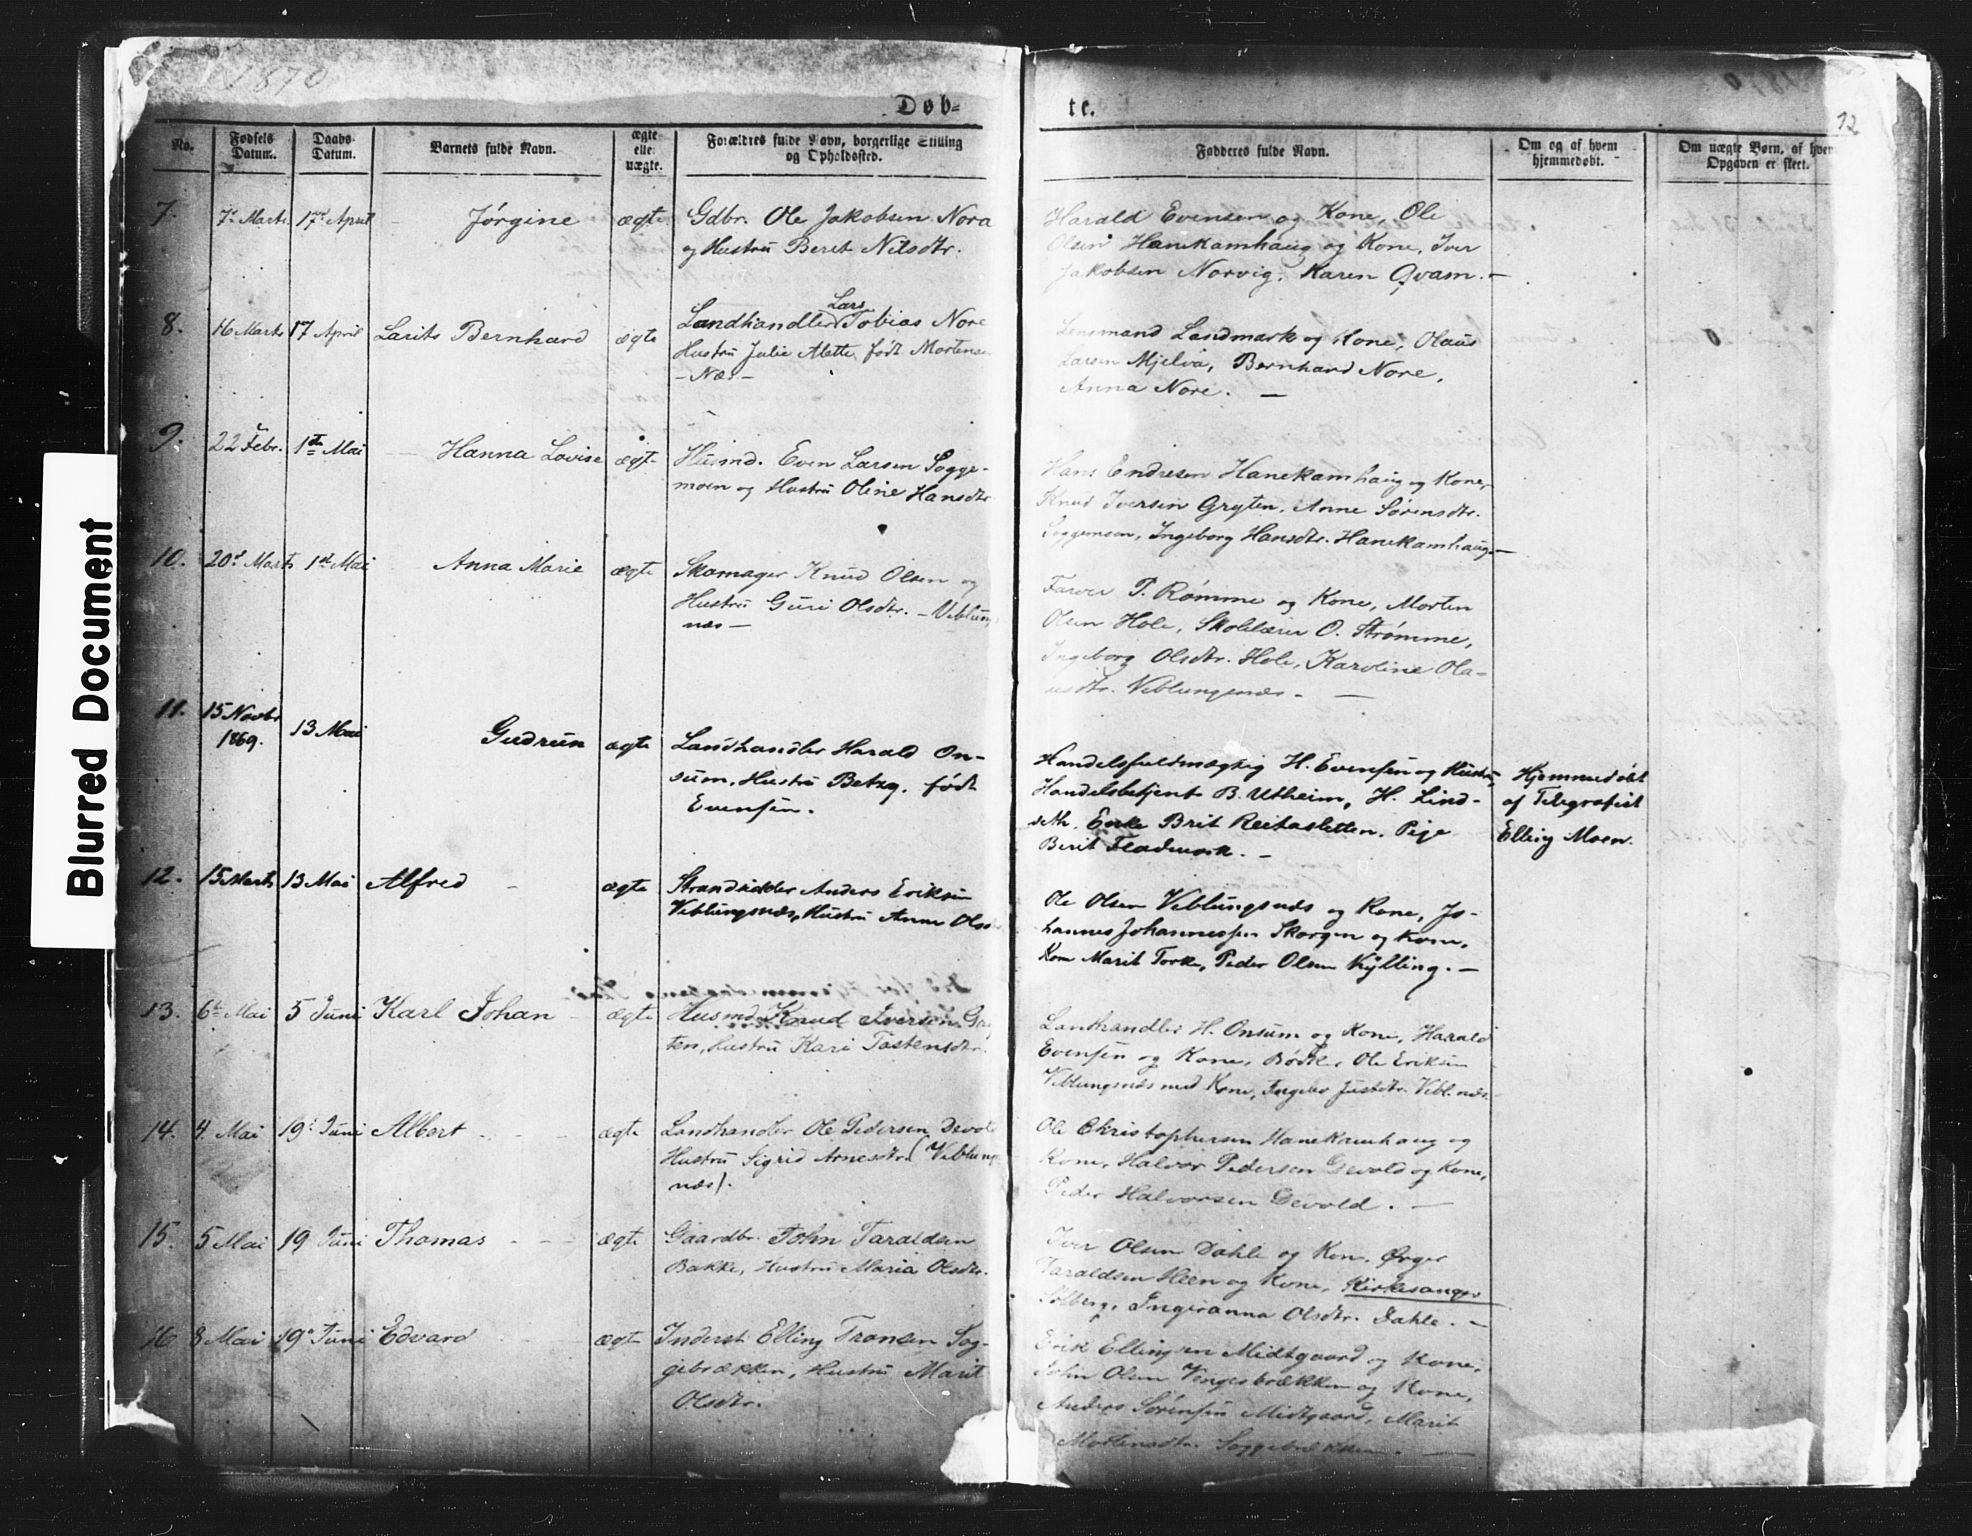 1870
Døb-
te.
12
Blurred Document
No.
Fødsels Datum.
Daabs- Datum.
Barnets fulde Navn.
ægte eller uægte.
Forældres fulde Navn, borgerlige Stilling og Opholdssted.
Fadderes fulde Navn.
Om og af hvem hjemmedøbt.
Om uægte Børn, af hvem Opgaven er skeet.
7. 7de Marts 17de April Jørgine ægte Gdbr. Ole Jakobsen Nora
og Hustru Beret Nilsdtr.
Harald Evensen og Kone, Ole
Olsen Hanekamhaug og Kone, Iver
Jakobsen Norvig, Karen Qvam. -
8. 16 Marts 17 April Laurits Bernhard ægte Landhandler Lars Tobias Nore
Hustru Julie Alette, født Mortensen
- Næs -
Lensmand Landmark og Kone, Olaus
Larsen Mjelva, Bernhard Nore,
Anna Nore. -
9. 22 Febr. 1ste Mai Hanna Lovise ægte Husmd. Even Larsen Sogge-
moen og Hustru Oline Hansdtr.
Hans Endresen Hanekamhaug og Kone,
Knud Iversen Gryten, Anne Sørensdtr.
Soggemoen, Ingeborg Hansdtr. Hanekamhaug -
10. 20de Marts 1ste Mai Anna Marie ægte Skomager Knud Olsen og
Hustru Guri Olsdtr. - Veblungs
næs -
Farver P. Rømme og Kone, Morten
Olsen Hole, Skolelærer O. Strømme,
Ingeborg Olsdtr. Hole, Karoline Ola-
usdtr. Veblungsnæs. -
11. 15 Novbr 1869. 13 Mai Gudrun ægte Landhandler Harald On-
sum, Hustru Betzy, født
Evensen.
Handelsfuldmægtig H. Evensen og Hustru,
Handelsbetjent B. Utheim, H. Lind-
seth, Enke Brit Reitasletten, Pige
Berit Fladmark. -
Hjemmedøbt
af Telegrafist
Elling Moen.
12. 15 Marts 13 Mai Alfred - ægte Strandsidder Anders Eriksen
Veblungsnæs, Hustru Anne Olsd
Ole Olsen Veblungsnæs og Kone, Jo-
hannes Johannessen Skorgen og Kone,
Kone Marit Torke, Peder Olsen Kylling. -
13. 6te Mai 5 Juni Karl Johan - ægte Husmd Knud Iversen Gry
ten, Hustru Kari Tostensdtr.
Landhandler H. Onsum og Kone, Harald
Evensen og Kone, Bødker Ole Eriksen
Veblungsnæs med Kone, Ingebor Justdtr. Vebl.næs.
14. 4. Mai 19de Juni Albert - - - ægte Landhandler Ole Pedersen Devold
Hustru Sigrid Arnesdtr. (Veblungs
næs).
Ole Christophersen Hanekamhaug og
Kone, Halvor Pedersen Devold og Kone,
Peder Halvorsen Devold. -
15. 5 Mai 19 Juni Thomas - - - ægte Gaardbr. John Taraldsen
Bakke, Hustru Maria Olsdtr.
Iver Olsen Dahle og Kone, Ørger
Taraldsen Heen og Kone, Kirkesanger
Solberg, Ingeranna Olsdtr. Dahle. -
16 8 Mai 19de Juni Edvard - - ægte Inderst Elling Tronsen Sog-
gebrækken, Hustru Marit
Olsdtr.
Erik Ellingsen Midtgaard og Kone,
John Olsen Vengesbrækken og Kone,
Anders Sørensen Midtgaard, Marit
Mortensdtr. Soggebrækken. -